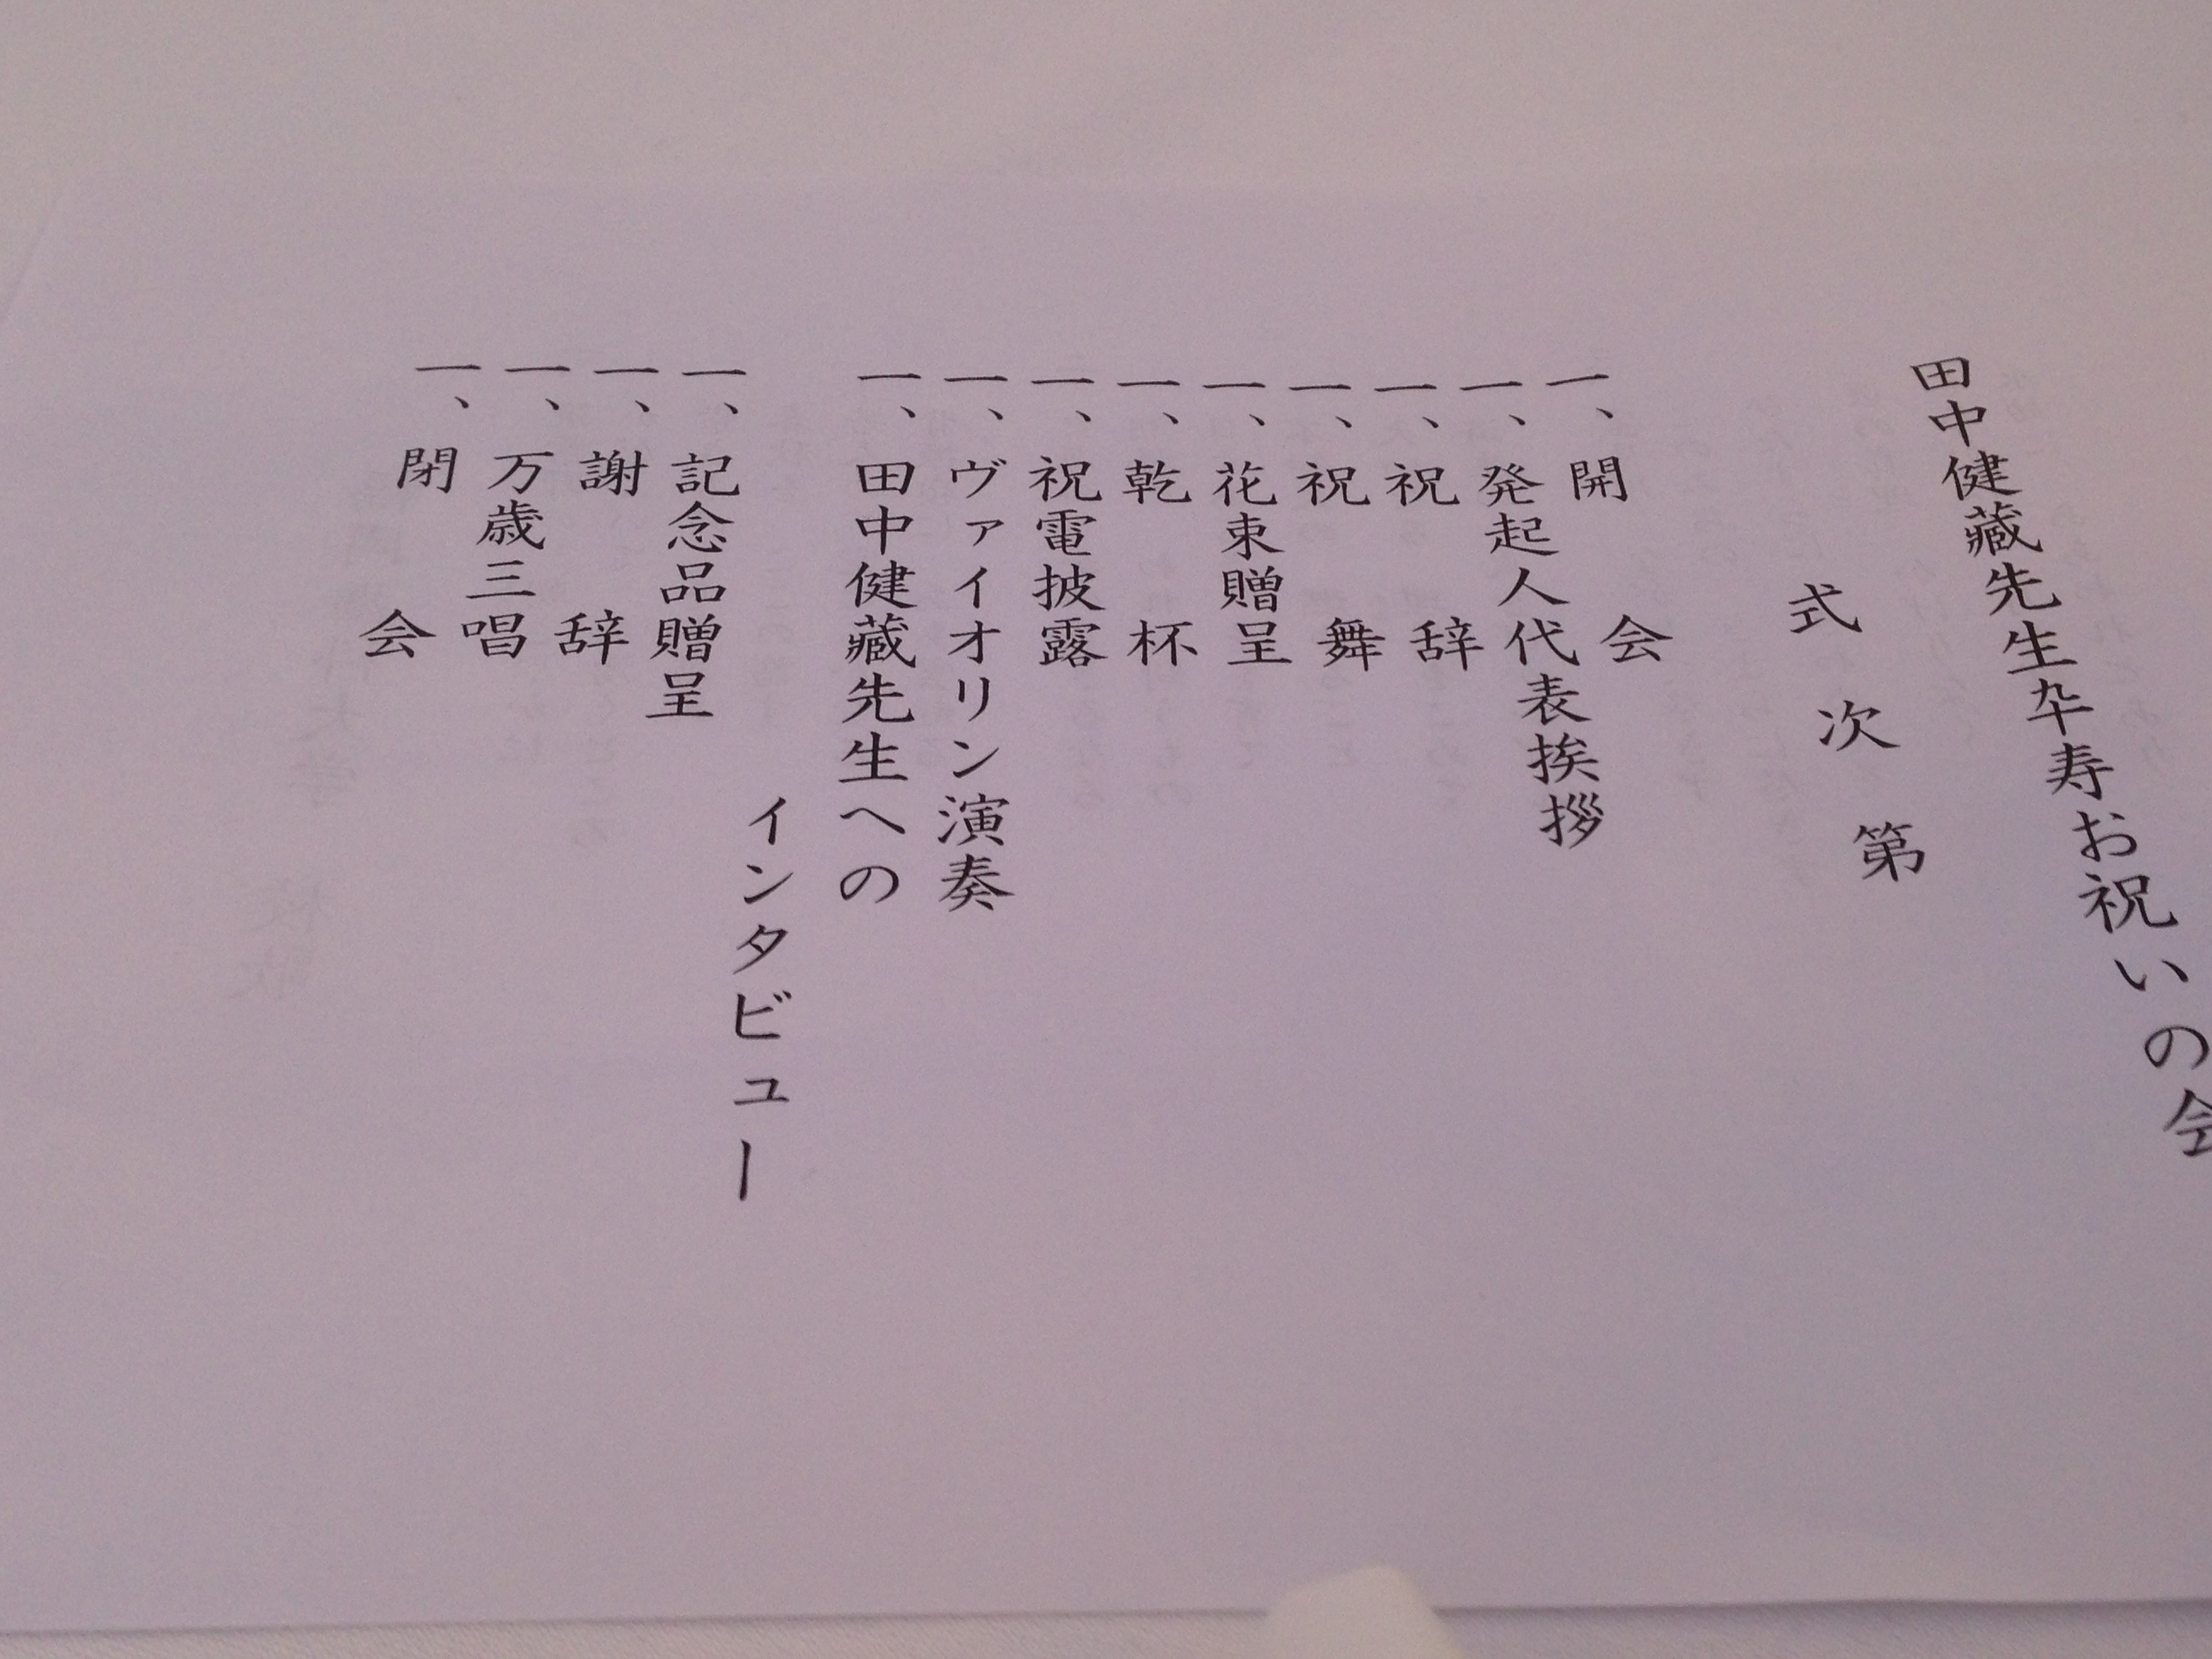 田中健藏先生卆寿お祝いの会
式次第
一、開会
一、発起人代表挨拶
一、祝辞
一、祝舞
一、花束贈呈
一、乾杯
一、祝電披露
一、ヴァイオリン演奏
一、田中健藏先生への
インタビュー
一、記念品贈呈
一、謝辞
一、万歳三唱
一、閉会